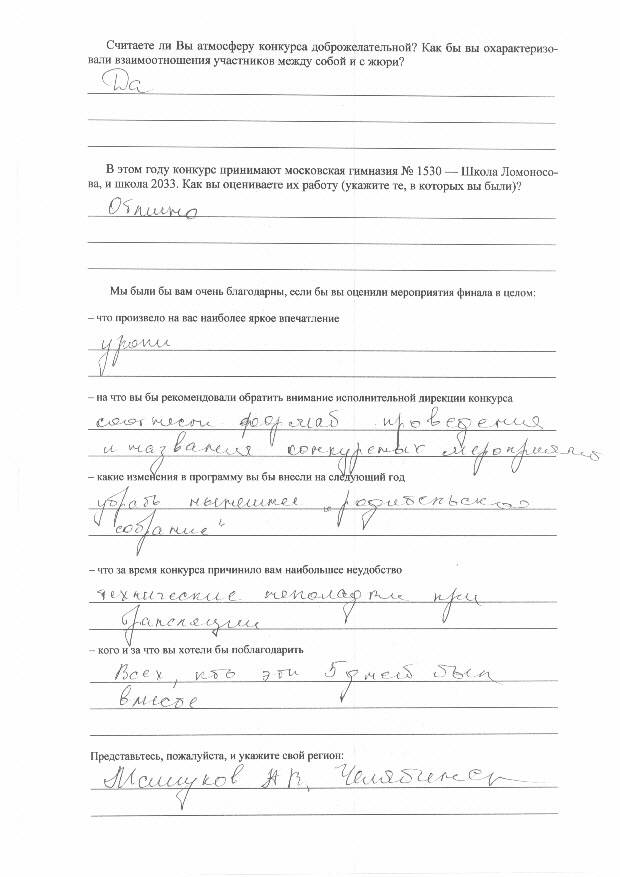 Считаете ли Вы атмосферу конкурса доброжелательной? Как бы вы охарактеризо-
вали взаимоотношения участников между собой и с жюри?
Да
В этом году конкурс принимают московская гимназия № 1530 — Школа Ломоносо-
ва, и школа 2033. Как вы оцениваете их работу (укажите те, в которых вы были)?
Отлично
Мы были бы вам очень благодарны, если бы вы оценили мероприятия финала в целом:
– что произвело на вас наиболее яркое впечатление
уроки
– на что вы бы рекомендовали обратить внимание исполнительной дирекции конкурса
формат проведения
и названия конкурсных мероприятий
– какие изменения в программу вы бы внесли на следующий год
убрать нынешнее „родительское
собрание“
– что за время конкурса причинило вам наибольшее неудобство
технические неполадки при
трансляции
– кого и за что вы хотели бы поблагодарить
Всех, кто эти 5 дней был
вместе
Представьтесь, пожалуйста, и укажите свой регион:
А В, Челябинск